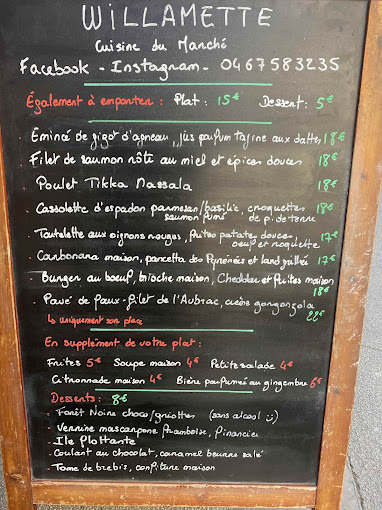 WILLAMETTE
Cuisine du Marché
Facebook - Instagram - 0467583235
Également à emporter : Plat : 15€ Dessert : 5€
Emincé de gigot d'agneau, jus parfum tagine aux dattes 18€
Filet de saumon rôti au miel et épices douces 18€
Poulet Tikka Massala 18€
. Cassolette d'espadon parmesan/basilic, croquettes 18€
saumon fumé de p. de terre
. Tartelette aux oignons rouges, frites patates douces 17€
oeuf et roquette
. Carbonara maison, pancetta des Pyrénées et lard grillé 17€
. Burger au boeuf, brioche maison, Cheddar et frites maison
18€
. Pavé de faux-filet de l'Aubrac, crème gorgonzola
22€
↳ uniquement sur place
En supplément de votre plat :
Frites 5€ Soupe maison 4€ Petite salade 4€
Citronnade maison 4€ Bière parfumée au gingembre 6€
Desserts : 8€
. Forêt Noire choco/griottes (sans alcool :))
. Verrine mascarpone framboise, financier
. Ile Flottante
. Coulant au chocolat, caramel beurre salé
. Tome de brebis, confiture maison